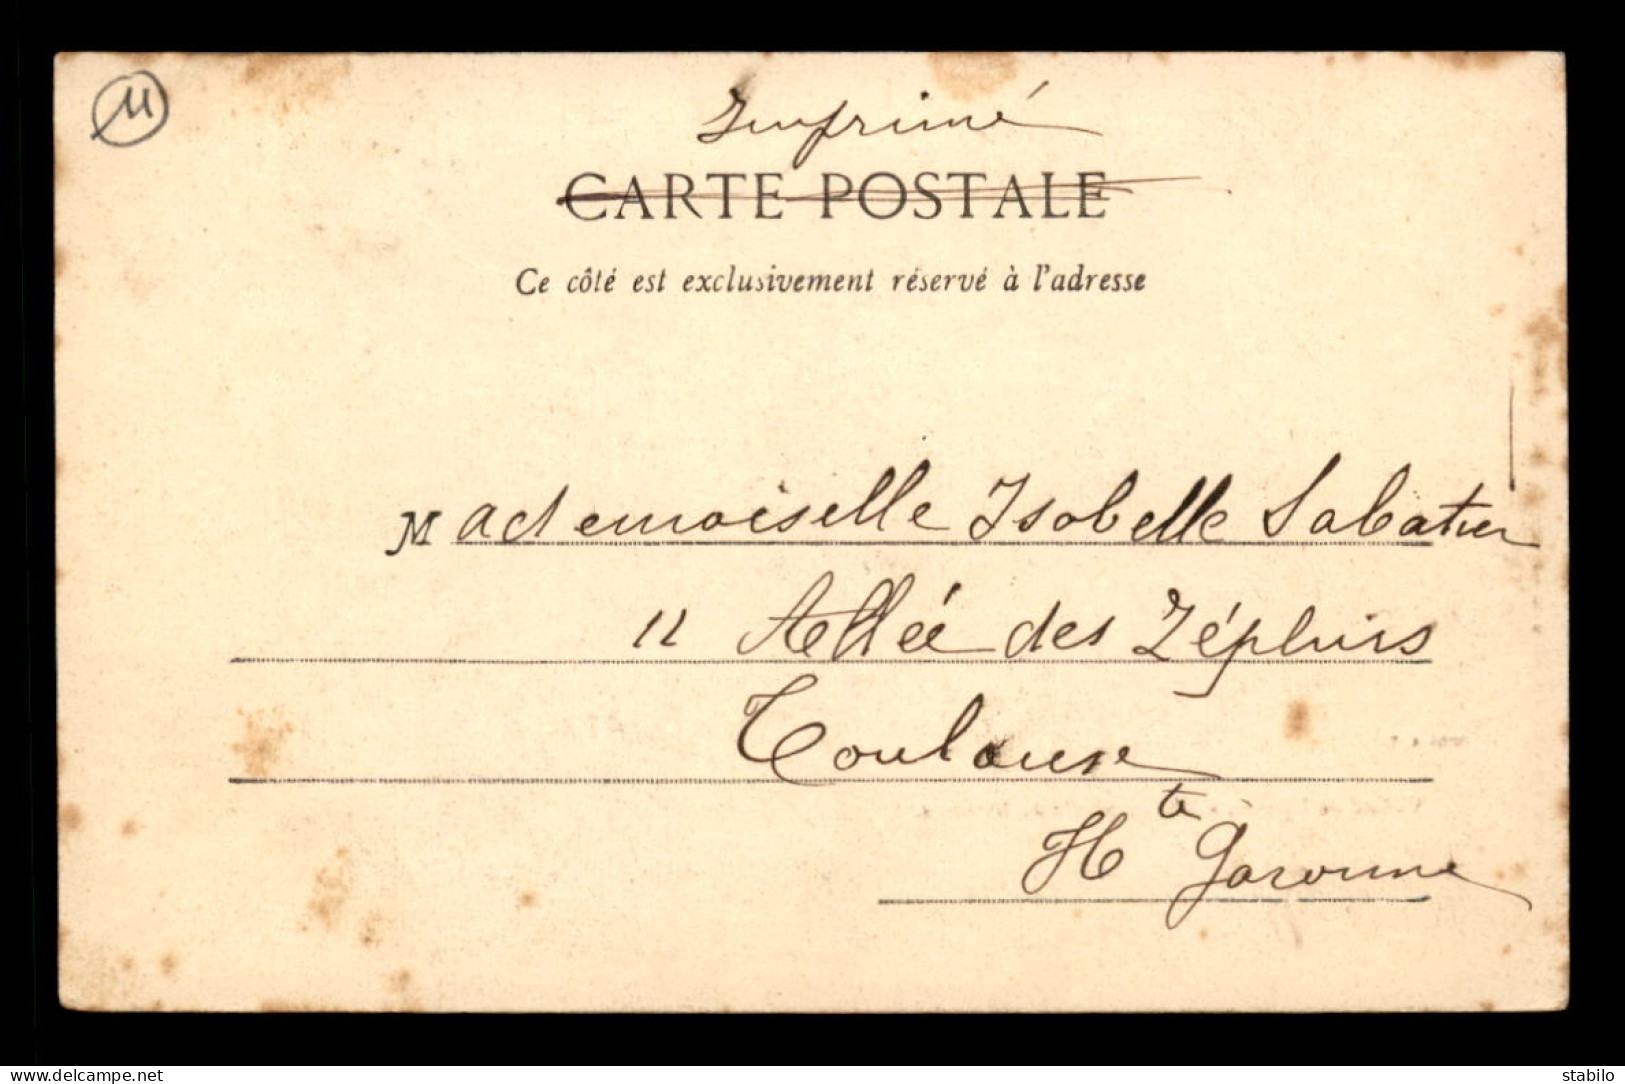 11
Imprimé
CARTE POSTALE
Ce côté est exclusivement réservé à l'adresse
Mademoiselle Isabelle Sabatier
11 Allée des Zéphirs
Toulouse
Hte Garonne
www.delcampe.net
stabilo